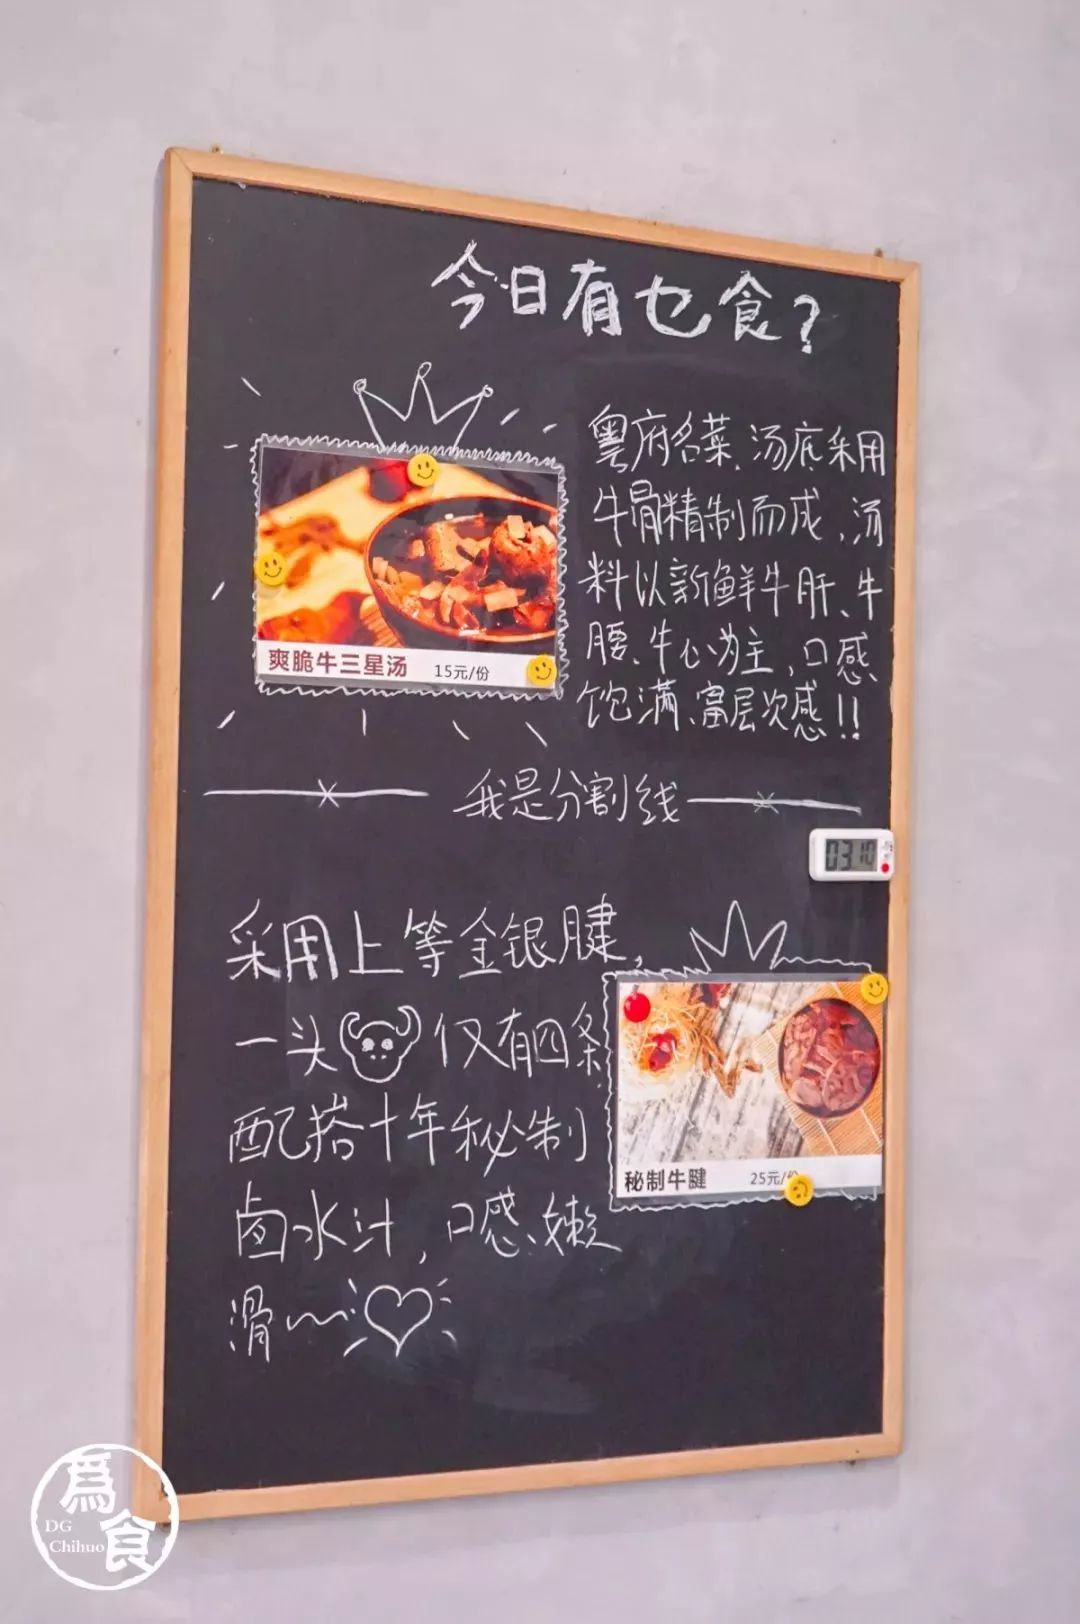 今日有乜食?
粤府名菜、汤底采用
牛骨精制而成,汤
料以新鲜牛肝、牛
腰、牛心为主,口感
饱满、富层次感!!
爽脆牛三星汤 15元/份
我是分割线
03 10
采用上等金银腱,
一头 仅有四条
配搭十年秘制
卤水汁,口感嫩
滑~
秘制牛腱 25元/份
爲食
DG
Chihuo